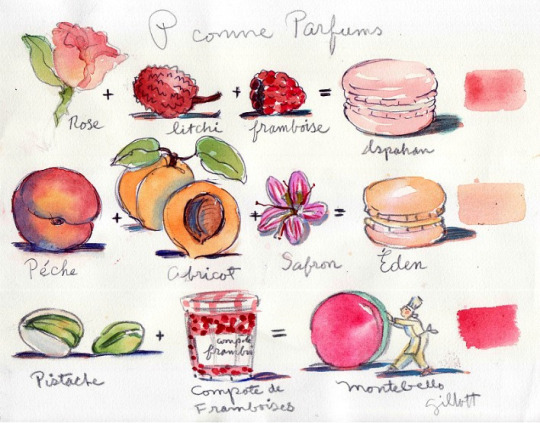 P comme Parfums
+ + =
Rose litchi framboise Ispahan
+ + =
Pêche Abricot Safron Éden
+ =
compote
framboi
Pistache Compote de Framboises Montebello
gillott